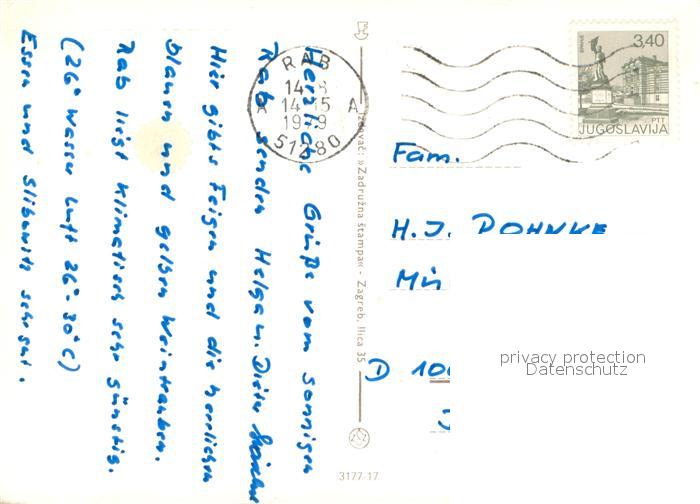 Herzliche Grüße vom sonnigen
Rab senden Helga u. Dieter
Hier gibts Feigen und die herrlichen
blauen und gelben Weintrauben.
Rab liegt Klimatisch sehr günstig.
(26° Wasser Luft 26°-30°C)
Essen und Slibowitz sehr gut.
RAB
14-8
14-15
A A
1979
51280
"Zadružna štampa" - Zagreb, Ilica 35
3177-17
3,40
PTT
JUGOSLAVIJA
Fam.
H.J. DOHNKE
D 10
privacy protection
Datenschutz